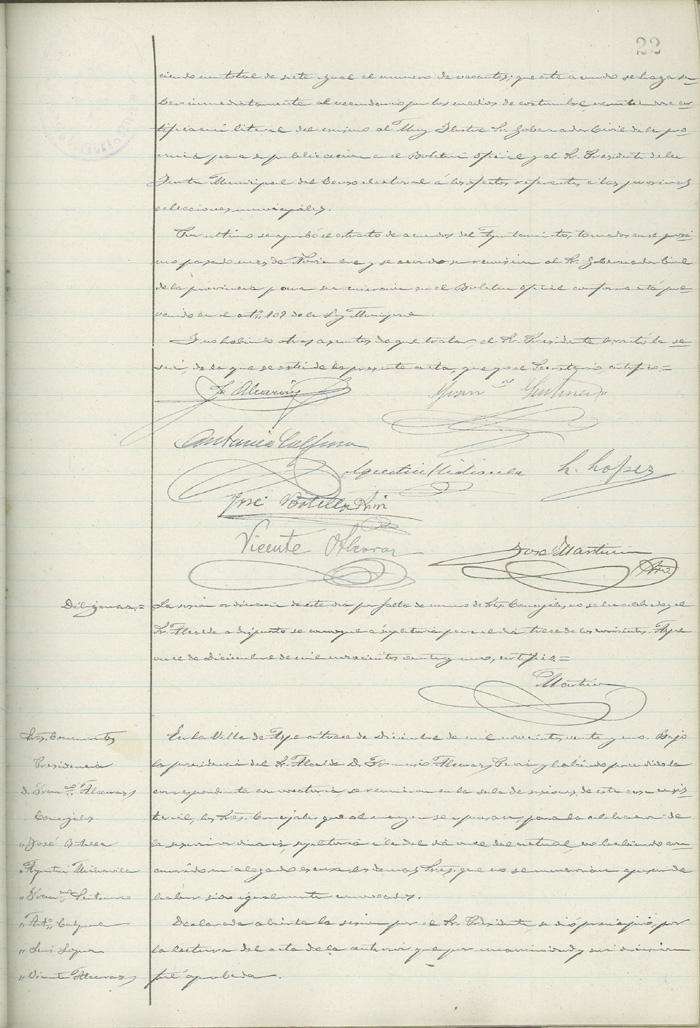 22
ciendo un total de siete igual al numero de vacantes; que este acuerdo se haga sa-
ber inmediatamente al vecindario por los medios de costumbre, remitiendo cer-
tificacion literal del mismo al Muy Iltre Sr. Gobernador Civil de la pro-
vincia para su publicacion en el Boletin Oficial y al Sr. Presidente de la
Junta Municipal del Censo electoral á los efectos referentes a las proximas
elecciones municipales.
Por ultimo se aprobó el extracto de acuerdos del Ayuntamiento, tomados en el proxi-
mo pasado mes de Noviembre y se acordo su remision al Sr. Gobernador Civil
de la provincia para su insercion en el Boletin oficial conforme está pre-
venido en el artº 109 de la Ley Municipal.
Y no habiendo otros asuntos de que tratar el Sr. Presidente levantó la se-
sion, de la que se estiende la presente acta, que yo el Secretario certifico=
F. Alcaraz
Antonio
Agustin
L. Lopez
José Botella
Vicente Alcaraz
José Martinez
Diligencia,= La sesion ordinaria de este dia por falta de numero de Sres. Concejales, no se ha celebrado y el
Sr. Alcalde a dispuesto se convoque á supletoria para el dia trece de los corrientes. Aspe
once de Diciembre de mil novecientos veinte y uno, certifico.=
Martinez
Sres. Concurrentes
Presidencia
D. Francº Alcaraz
Concejales
" José Botella
" Agustin
" Franco
" Antº
" Luis Lopez
" Vicente Alcaraz
En la Villa de Aspe a trece de Diciembre de mil novecientos veinte y uno. Bajo
la presidencia del Sr. Alcalde D. Francisco Alcaraz y habiendo precedido la
correspondiente convocatoria se reunieron en la sala de sesiones de esta casa consis-
torial, los Sres. Concejales que al margen se espresan, para la celebracion de
la sesion ordinaria, supletoria a la del dia once del actual, no habiendo con-
currido ni alegado escusa los demas Sres. que no se mencionan apesar de
haber sido igualmente convocados.
Declarada abierta la sesion por el Sr. Presidente, se dió principio, por
la lectura del acta de la anterior que por unanimidad y sin discusion
fué aprobada.